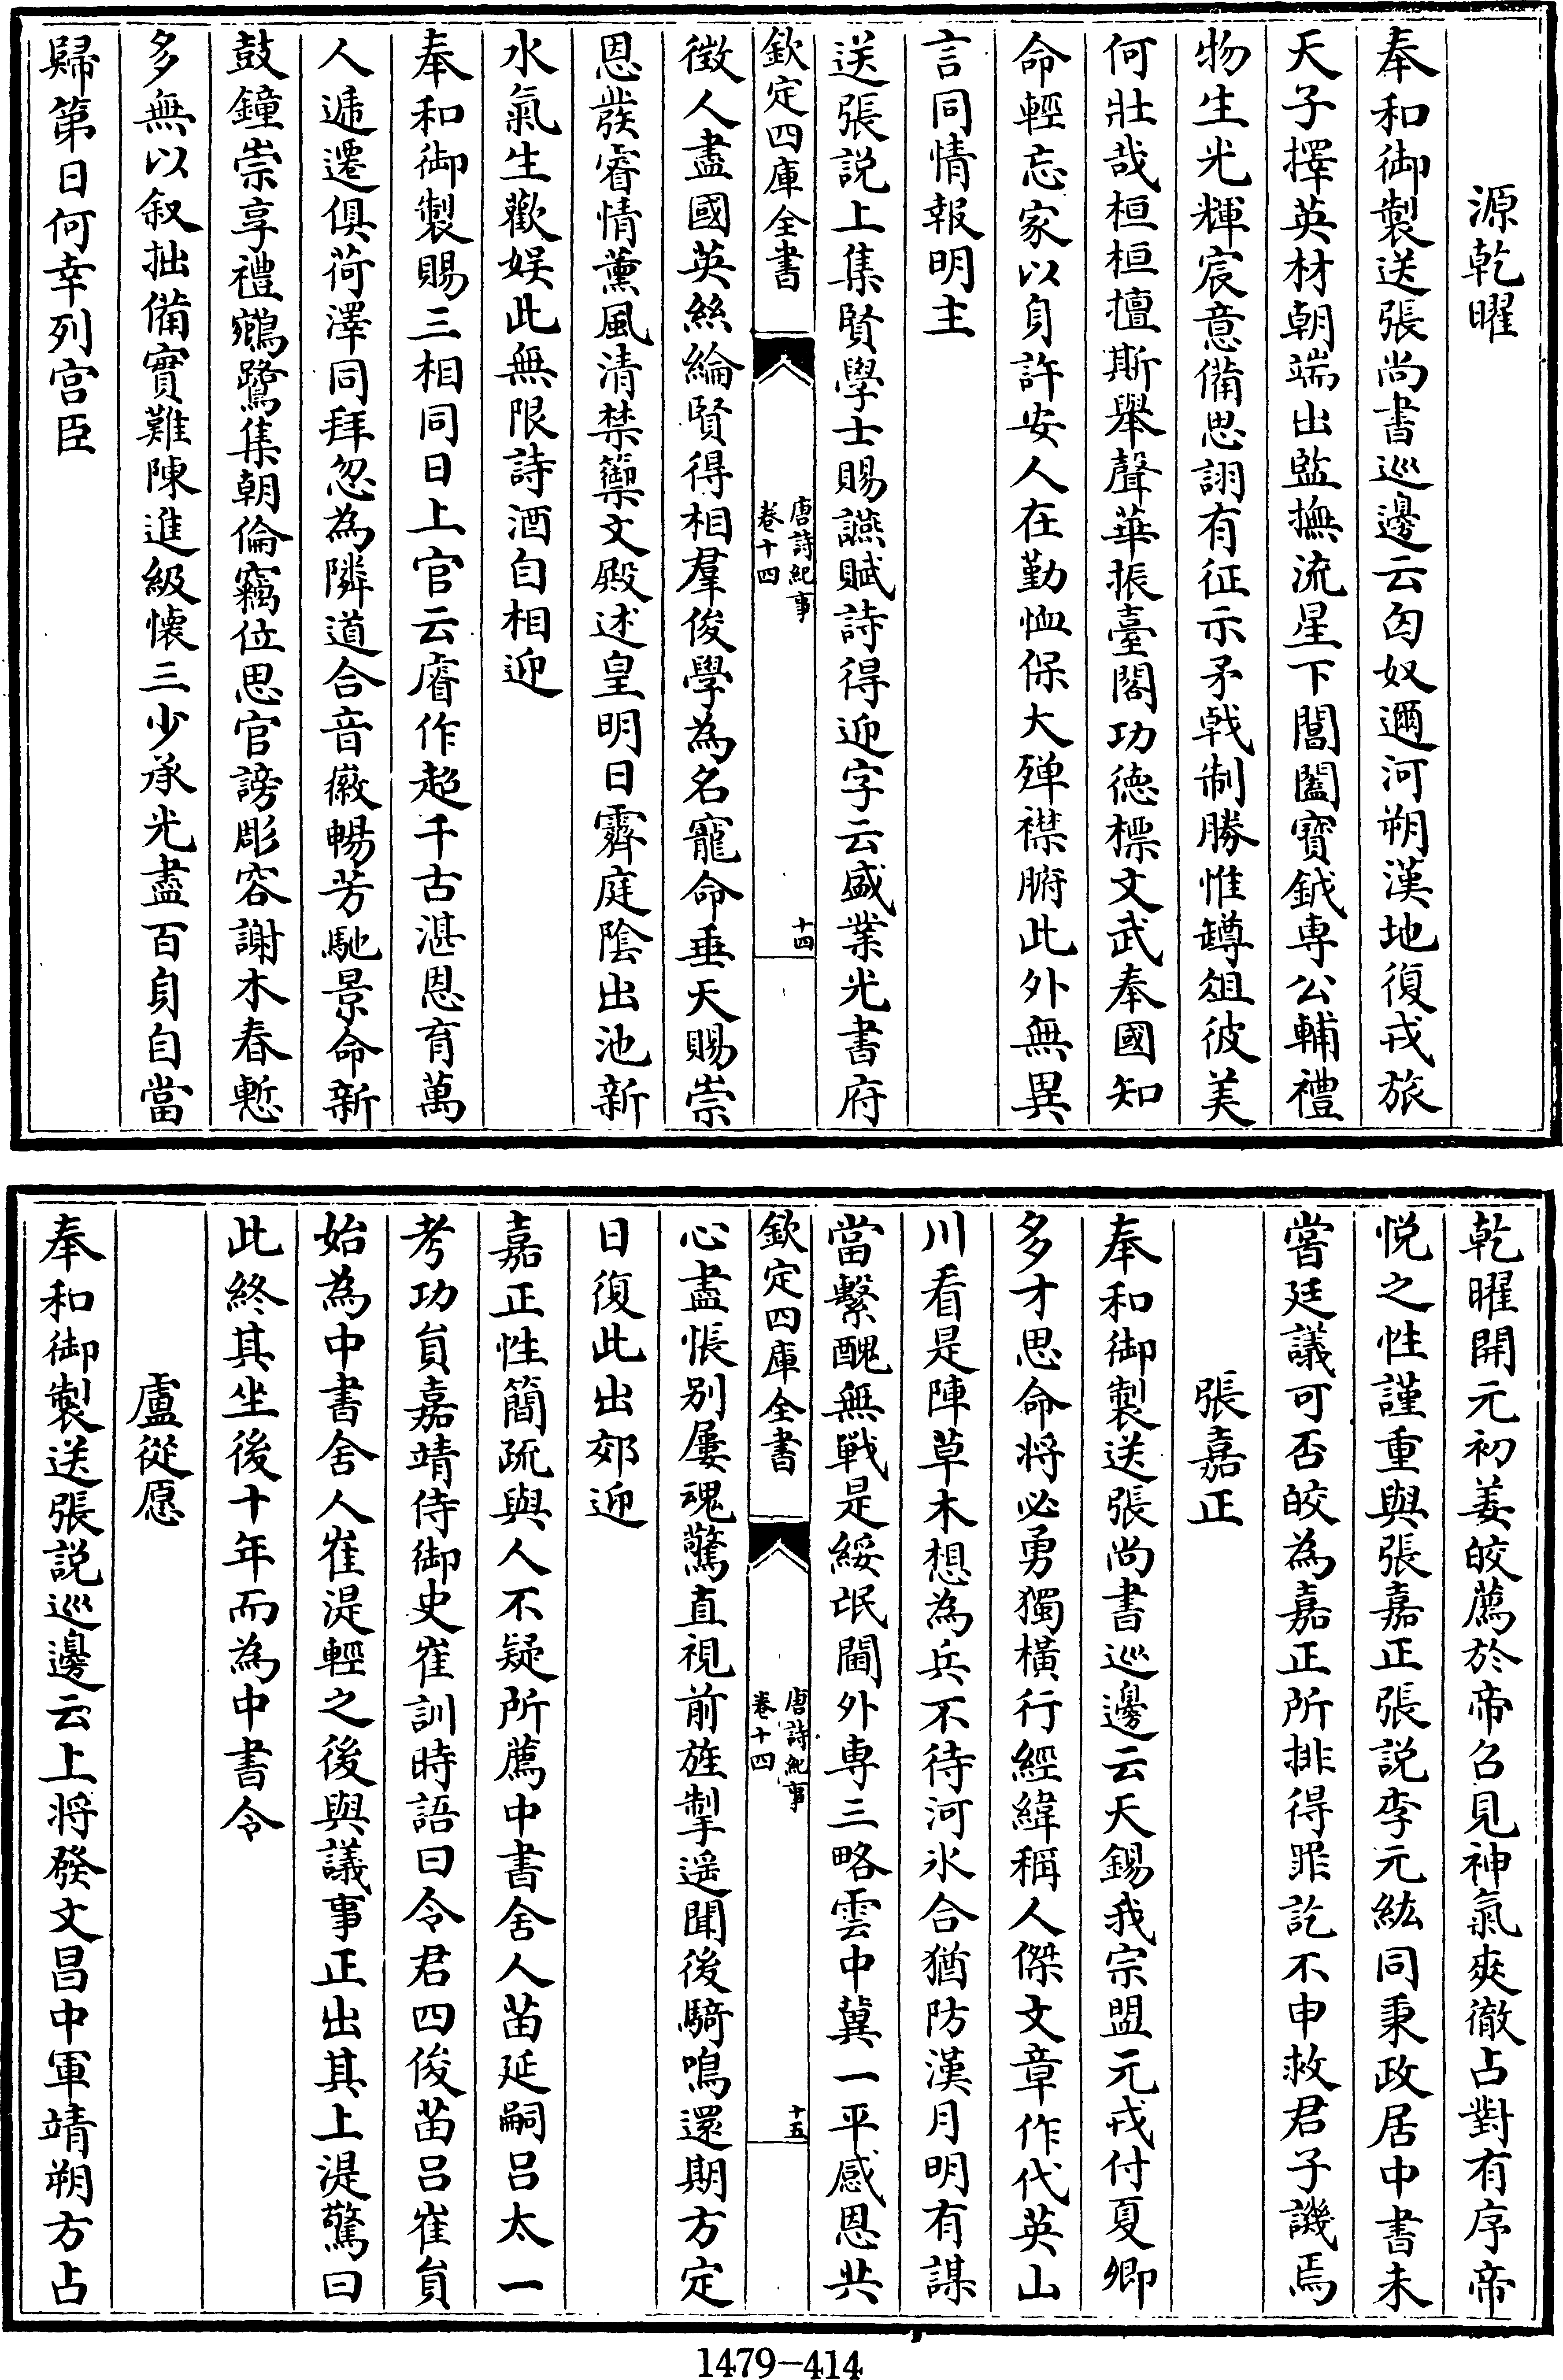 源乾曜
奉和御製送張尚書巡邊云匈奴邇河朔漢地復戎旅
天子擇英材朝端出監撫流星下閶闔寳鉞専公輔禮
物生光輝宸意備思詡有征示矛㦸制勝惟罇俎彼美
何壯哉桓桓擅斯舉聲華振臺閣功徳標文武奉國知
命輕忘家以身許安人在勤恤保大殫襟腑此外無異
言同情報明主
送張説上集賢學士賜讌賦詩得迎字云盛業光書府
欽定四庫全書
唐詩紀事
卷十四
十四
徴人盡國英絲綸賢得相羣俊學為名寵命垂天賜崇
恩發睿情薫風清禁籞文殿述皇明日霽庭陰出池新
水氣生歡娱此無限詩酒自相迎
奉和御製賜三相同日上官云睿作超千古湛恩育萬
人逓遷俱荷澤同拜忽為隣道合音徽暢芳馳景命新
鼓鐘崇享禮鵷鷺集朝倫竊位思官謗彫容謝木春慙
多無以叙拙備實難陳進級懐三少承光盡百身自當
歸第日何幸列宫臣
乾曜開元初姜皎薦於帝召見神氣爽徹占對有序帝
悦之性謹重與張嘉正張説李元紘同秉政居中書未
嘗廷議可否皎為嘉正所排得罪訖不申救君子譏焉
張嘉正
奉和御製送張尚書巡邊云天錫我宗盟元戎付夏卿
多才思命将必勇獨横行經緯稱人傑文章作代英山
川看是陣草木想為兵不待河氷合猶防漢月明有謀
當繫醜無戰是綏氓閫外専三略雲中冀一平感恩共
欽定四庫全書
唐詩紀事
卷十四
十五
心盡悵别屡魂驚直視前旌掣遥聞後騎鳴還期方定
日復此出郊迎
嘉正性簡疏與人不疑所薦中書舍人苗延嗣吕太一
考功貟嘉靖侍御史崔訓時語曰令君四俊苗吕崔貟
始為中書舍人崔湜輕之後與議事正出其上湜驚曰
此終其坐後十年而為中書令
盧從愿
奉和御製送張説巡邊云上将發文昌中軍靖朔方占
1479-414